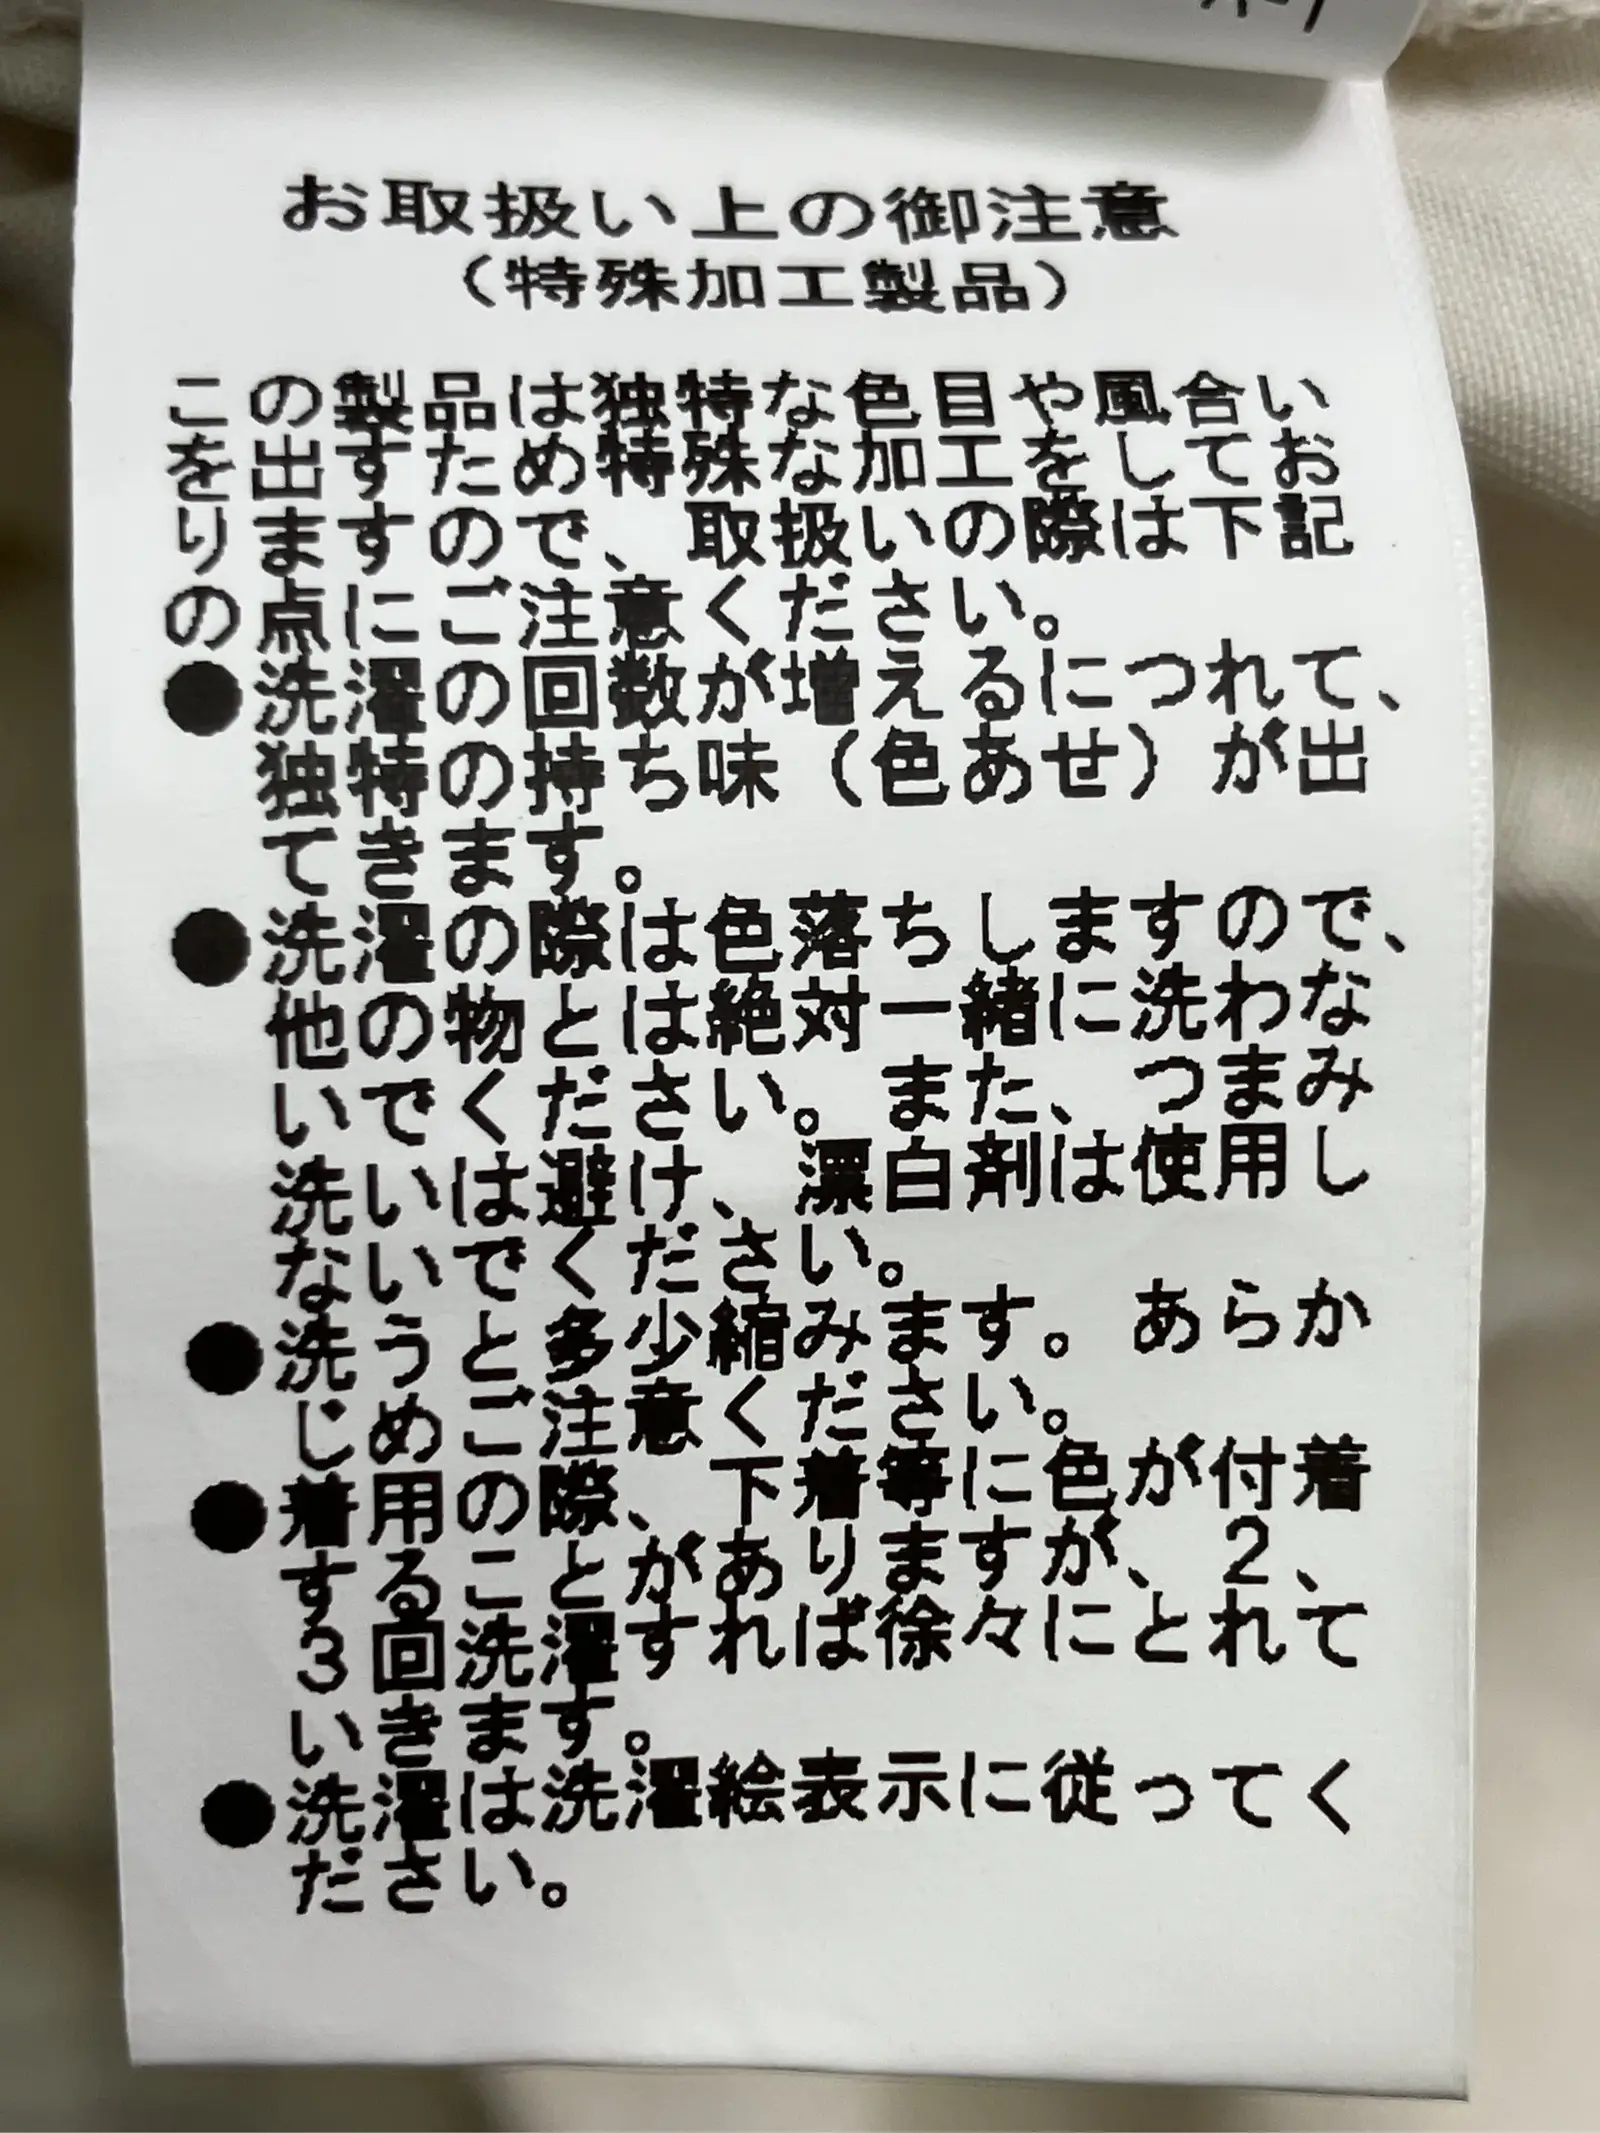 お取扱い上の御注意
（特殊加工製品）
この製品は独特な色目や風合い
を出すため特殊な加工をしてお
りますので、取扱いの際は下記
の点にご注意ください。
●洗濯の回数が増えるにつれて、
独特の持ち味（色あせ）が出
てきます。
●洗濯の際は色落ちしますので、
他の物とは絶対一緒に洗わな
いでください。また、つまみ
洗いは避け、漂白剤は使用し
ないでください。
●洗うと多少縮みます。あらか
じめご注意ください。
●着用の際、下着等に色が付着
することがありますが、２、
３回洗濯すれば徐々にとれて
いきます。
●洗濯は洗濯絵表示に従ってく
ださい。